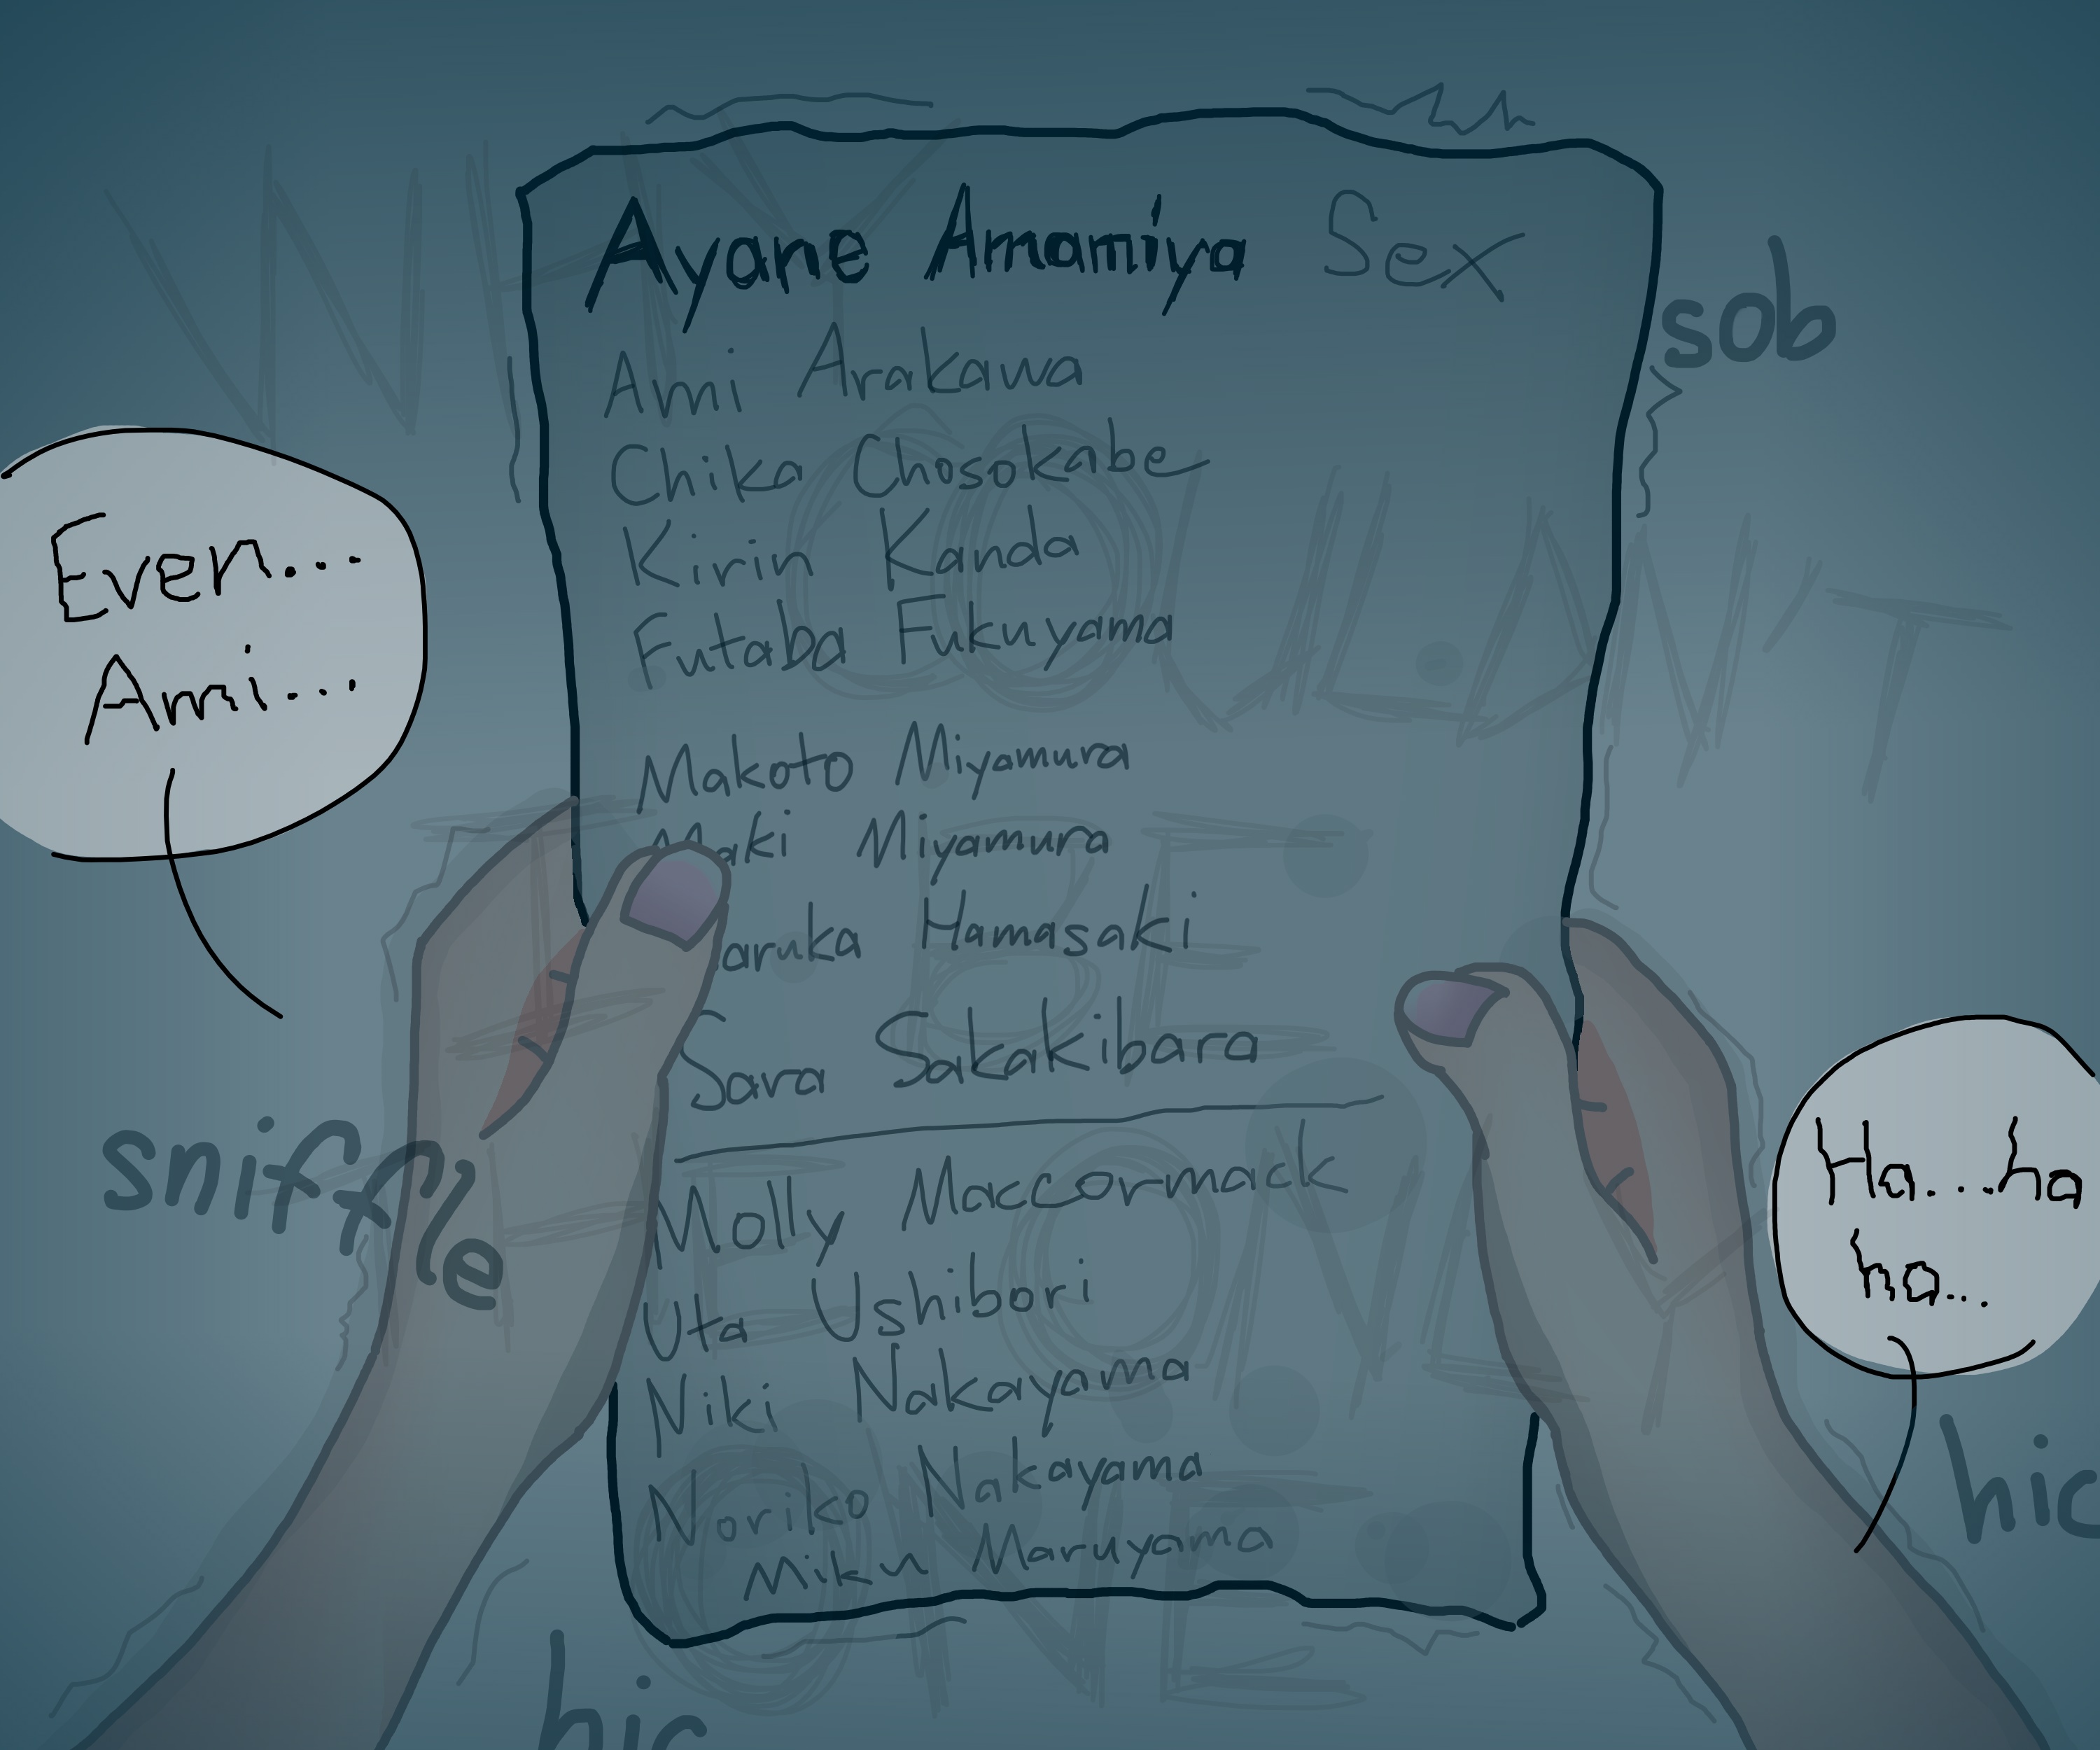 WHY
Ayane Amamiya Sex
sob
Ami Arakawa
Chika Chosokabe
COULDN'T
Even...
Ami...
Kirin Kanda
Futaba Fukuyama
Makoto Miyamura
Maki Miyamura
I BE
aruka Hamasaki
Sara Sakakibara
Ha...ha
ha...
sniffle
Molly Maccormack
Uta Ushibori
Niki Nakayama
hic
Noriko Nakayama
Miku Maruyama
ONE
hic